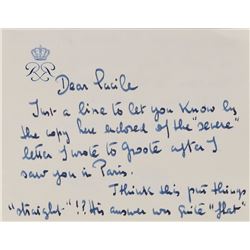 Dear Lucile
Just a line to let you know by
the copy here enclosed of the "severe"
letter I wrote to Groote after I
saw you in Paris.
I think this put things
"straight"!? His answer was quite "flat"